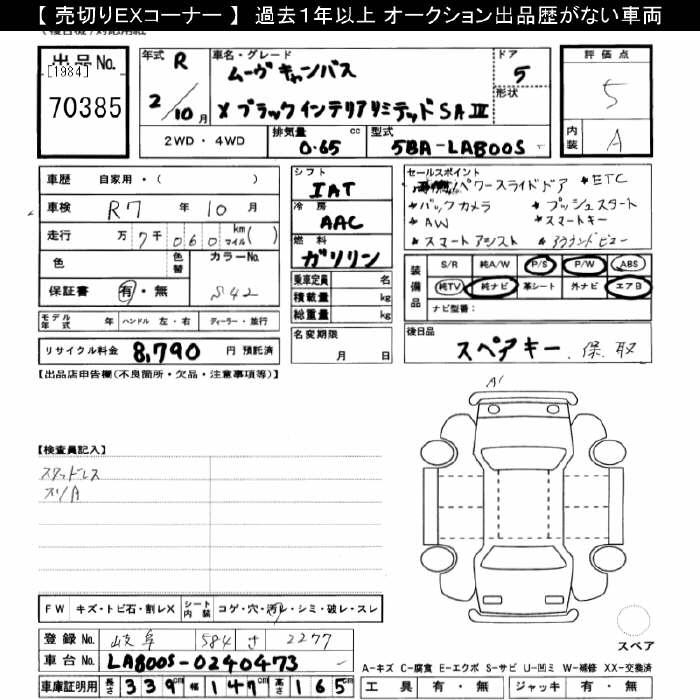 【 売切りEXコーナー 】 過去１年以上 オークション出品歴がない車両
出品No.
[1984]
70385
年式 R 2/10月
車名・グレード ムーヴキャンバス
X ブラックインテリアリミテッドSAⅢ
ドア 5
形状
評価点 5
内装 A
2WD・4WD
排気量 0.65 cc
型式 5BA-LA800S
車歴 自家用・( )
車検 R7 年 10 月
走行 万 7 千 060 km マイル ( )
色 色替 カラーNo.
保証書 有・無 S42
モデル年式 年 ハンドル 左・右 ディーラー・並行
リサイクル料金 8,790 円 預託済
シフト IAT
冷房 AAC
燃料 ガソリン
乗車定員 名
積載量 kg
総重量 kg
名変期限
月 日
セールスポイント
パワースライドドア *ETC
*バックカメラ *プッシュスタート
*AW *スマートキー
*スマートアシスト *アラウンドビュー
装備品 S/R 純A/W P/S P/W ABS
純TV 純ナビ 革シート 外ナビ エアB
ナビ型番:
後日品
スペアキー、保、取
【出品店申告欄(不良箇所・欠品・注意事項等)】
A1
【検査員記入】
スタッドレス
スリA
FW キズ・トビ石・割レX シート内装 コゲ・穴・汚レ・シミ・破レ・スレ
登録No. 岐阜 584 さ 2277
車台No. LA800S-0240473
車庫証明用 長さ 339cm 幅 147cm 高さ 165cm
スペア
A-キズ C-腐食 E-エクボ S-サビ U-凹ミ W-補修 XX-交換済
工具 有・無 ジャッキ 有・無